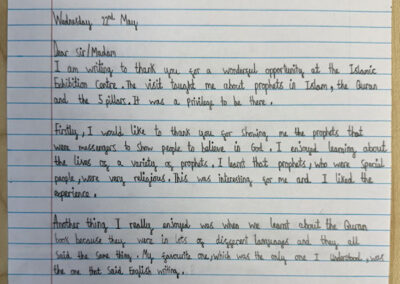 Wednesday 22nd May
Dear Sir/Madam
I am writing to thank you for a wonderful opportunity at the Islamic
Exhibition Centre. The visit taught me about prophets in Islam, the Quran
and the 5 pillars. It was a Privilege to be there.
Firstly, I would like to thank you for showing me the prophets that
were messengers to show people to believe in God. I enjoyed learning about
the lives of a variety of prophets. I learnt that prophets, who were special
people, were very religious. This was interesting for me and I liked the
experience.
Another thing I really enjoyed was when we learnt about the Quran
book because they were in lots of different languages and they all
said the same thing. My favourite one, which was the only one I understood, was
the one that said English writing.